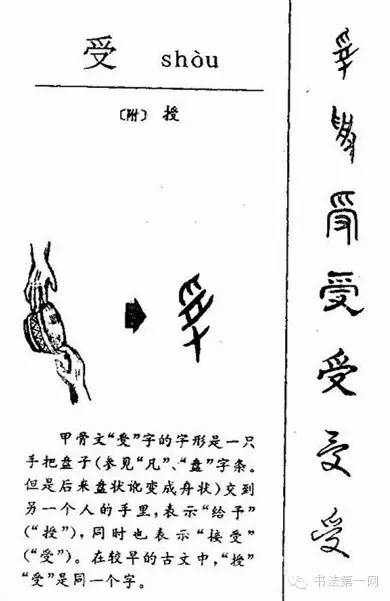 受 shòu
〔附〕授
甲骨文“受”字的字形是一只
手把盘子(参见“凡”、“盘”字条。
但是后来盘状讹变成舟状)交到
另一个人的手里,表示“给予”
(“授”),同时也表示“接受”
(“受”)。在较早的古文中,“授”
“受”是同一个字。
受
受
受
受
受
书法第一网